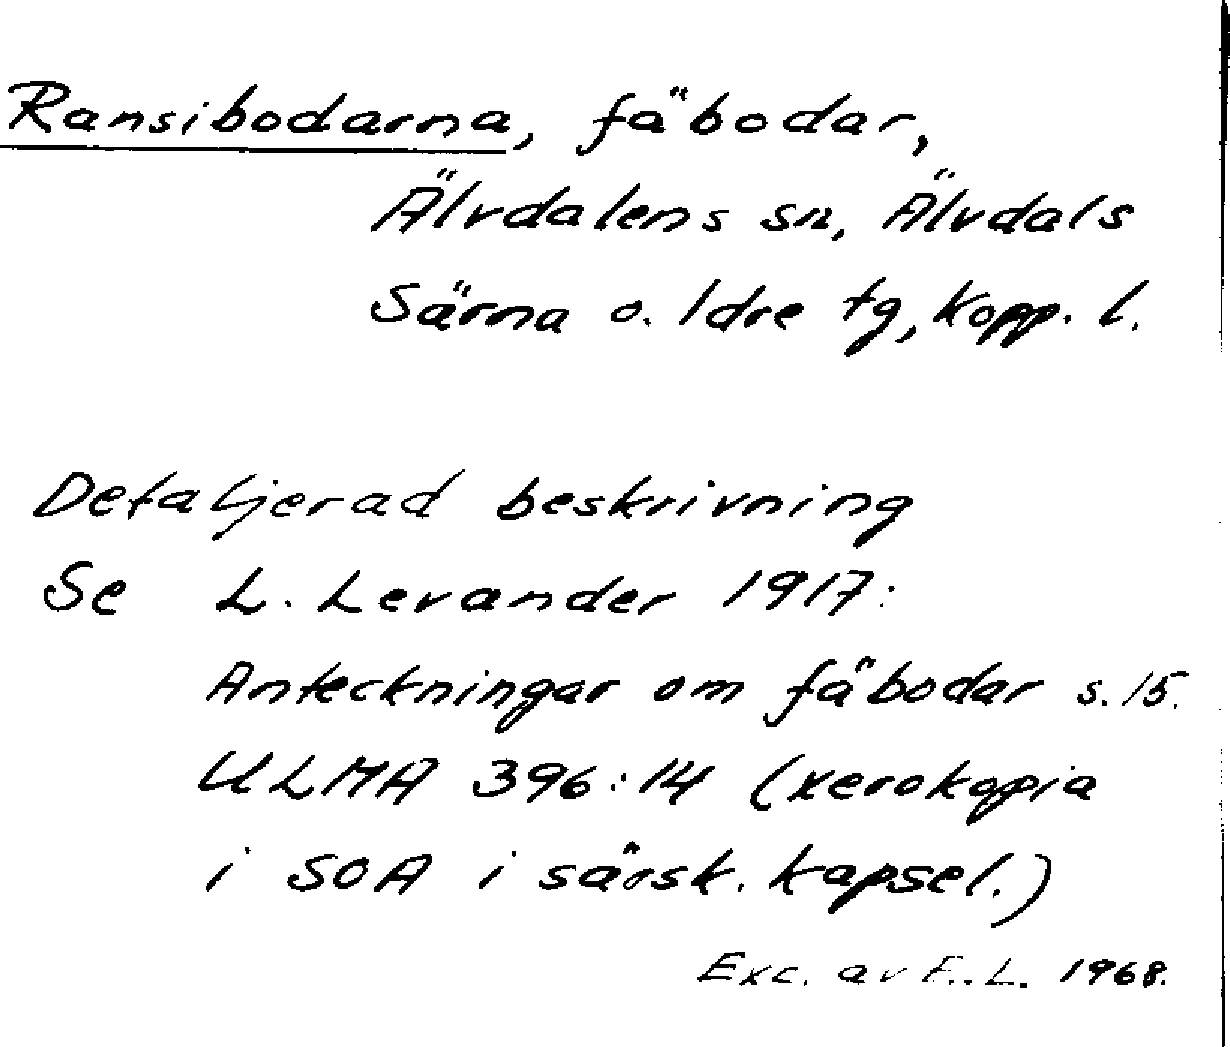 Ransibodarna, fäbodar,
Älvdalens sn, Älvdals
Särna o. Idre tg, Kopp. l.
Detaljerad beskrivning
Se L. Levander 1917:
Anteckningar om fäbodar s. 15.
ULMA 396:14 (xerokopia
i SOA i särsk. kapsel.)
Exc. av F. L. 1968.